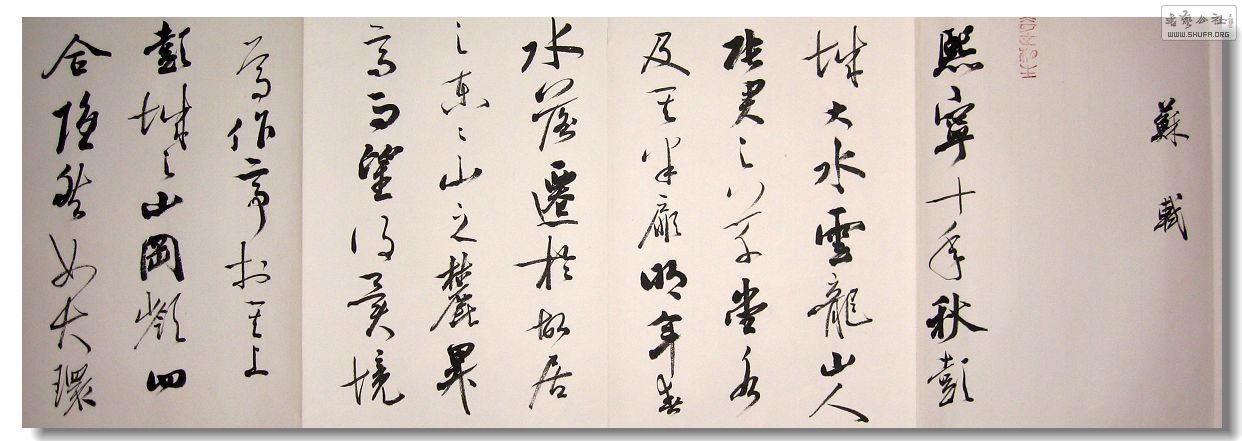 書藝公社
WWW.SHUFA.ORG
蘇軾
熙寧十年秋彭
城大水雲龍山人
張君之草堂水
及其半扉明年春
水落遷於故居
之東々山之麓昇
高而望得異境
焉作亭於其上
彭城之山岡嶺四
合隱然如大環